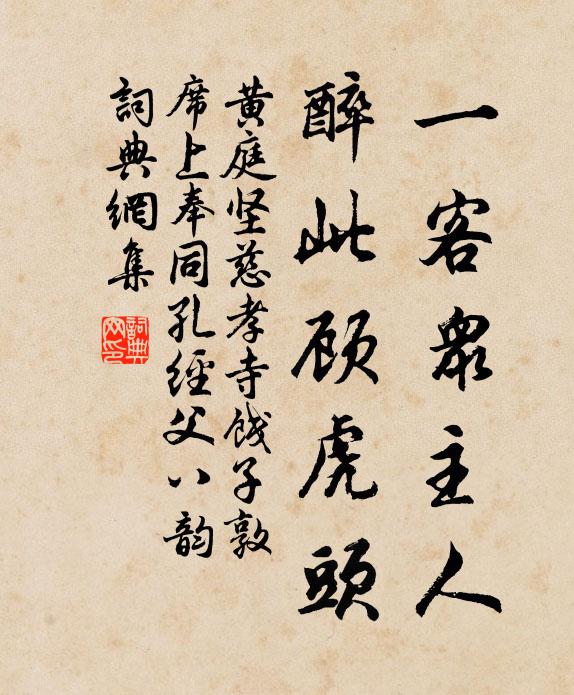 一客眾主人
醉此顾虎頭
黄庭坚慈孝寺饯子敦
席上奉同孔經父八韵
詞典網集
詞典網印